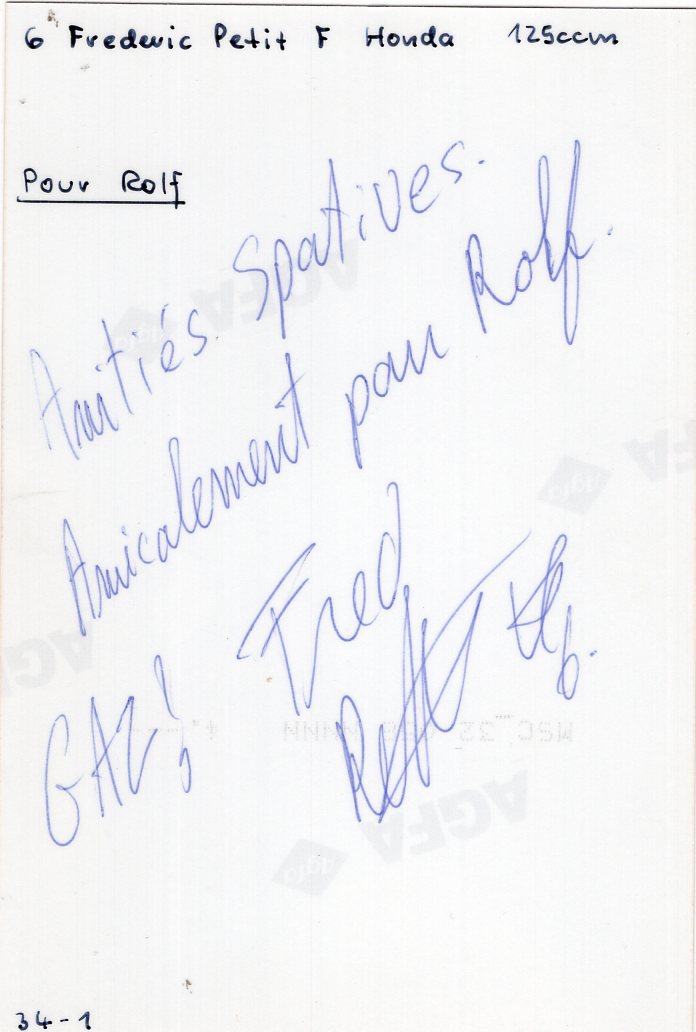 6 Frederic Petit F Honda 125ccm
Pour Rolf
Amitiés. Spatives.
Amicalement pour Rolf.
GAZ! Fred
AGFA
Agfa
AGFA
Agfa
AGFA
AGFA
Agfa
34-1